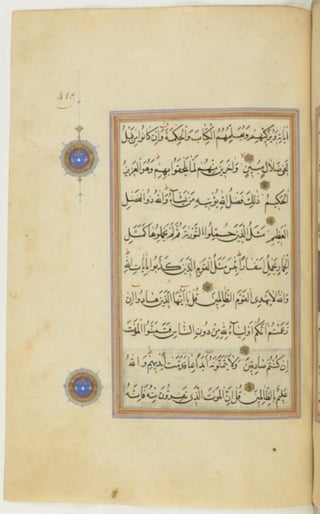 آياته ويزكيهم ويعلمهم الكتاب والحكمة وإن كانوا من قبل
لفي ضلال مبين وآخرين منهم لما يلحقوا بهم وهو العزيز
الحكيم ذلك فضل الله يؤتيه من يشاء والله ذو الفضل
العظيم مثل الذين حملوا التورية ثم لم يحملوها كمثل
الحمار يحمل أسفارا بئس مثل القوم الذين كذبوا بآيات الله
والله لا يهدي القوم الظالمين قل يا أيها الذين هادوا إن
زعمتم أنكم أولياء لله من دون الناس فتمنوا الموت
إن كنتم صادقين ولا يتمنونه أبدا بما قدمت أيديهم والله
عليم بالظالمين قل إن الموت الذي تفرون منه فإنه